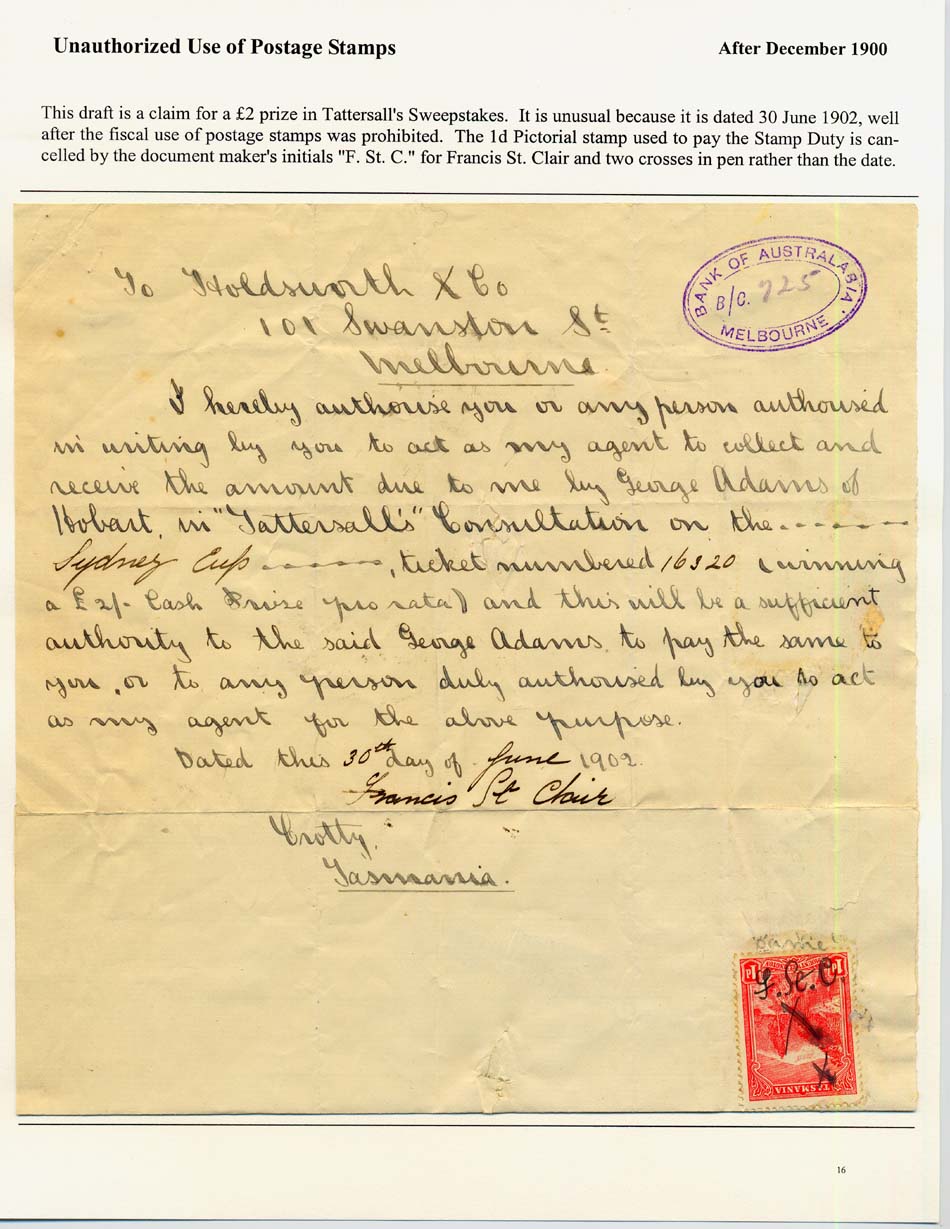 Unauthorized Use of Postage Stamps
After December 1900
This draft is a claim for a £2 prize in Tattersall's Sweepstakes. It is unusual because it is dated 30 June 1902, well
after the fiscal use of postage stamps was prohibited. The 1d Pictorial stamp used to pay the Stamp Duty is can-
celled by the document maker's initials "F. St. C." for Francis St. Clair and two crosses in pen rather than the date.
BANK OF AUSTRALASIA
B/C. 725
MELBOURNE
To Holdsworth & Co
101 Swanston St
Melbourne
I hereby authorise you or any person authorised
in writing by you to act as my agent to collect and
receive the amount due to me by George Adams of
Hobart, in "Tattersall's" Consultation on the
Sydney Cup, ticket numbered 16320 (winning
a £2/- Cash Prize pro rata) and this will be a sufficient
authority to the said George Adams, to pay the same to
you, or to any person duly authorised by you to act
as my agent for the above purpose.
Dated this 30th day of June 1902.
Francis St Clair
Crotty,
Tasmania.
F. St. C.
X
X
1d
1d
TASMANIA
16